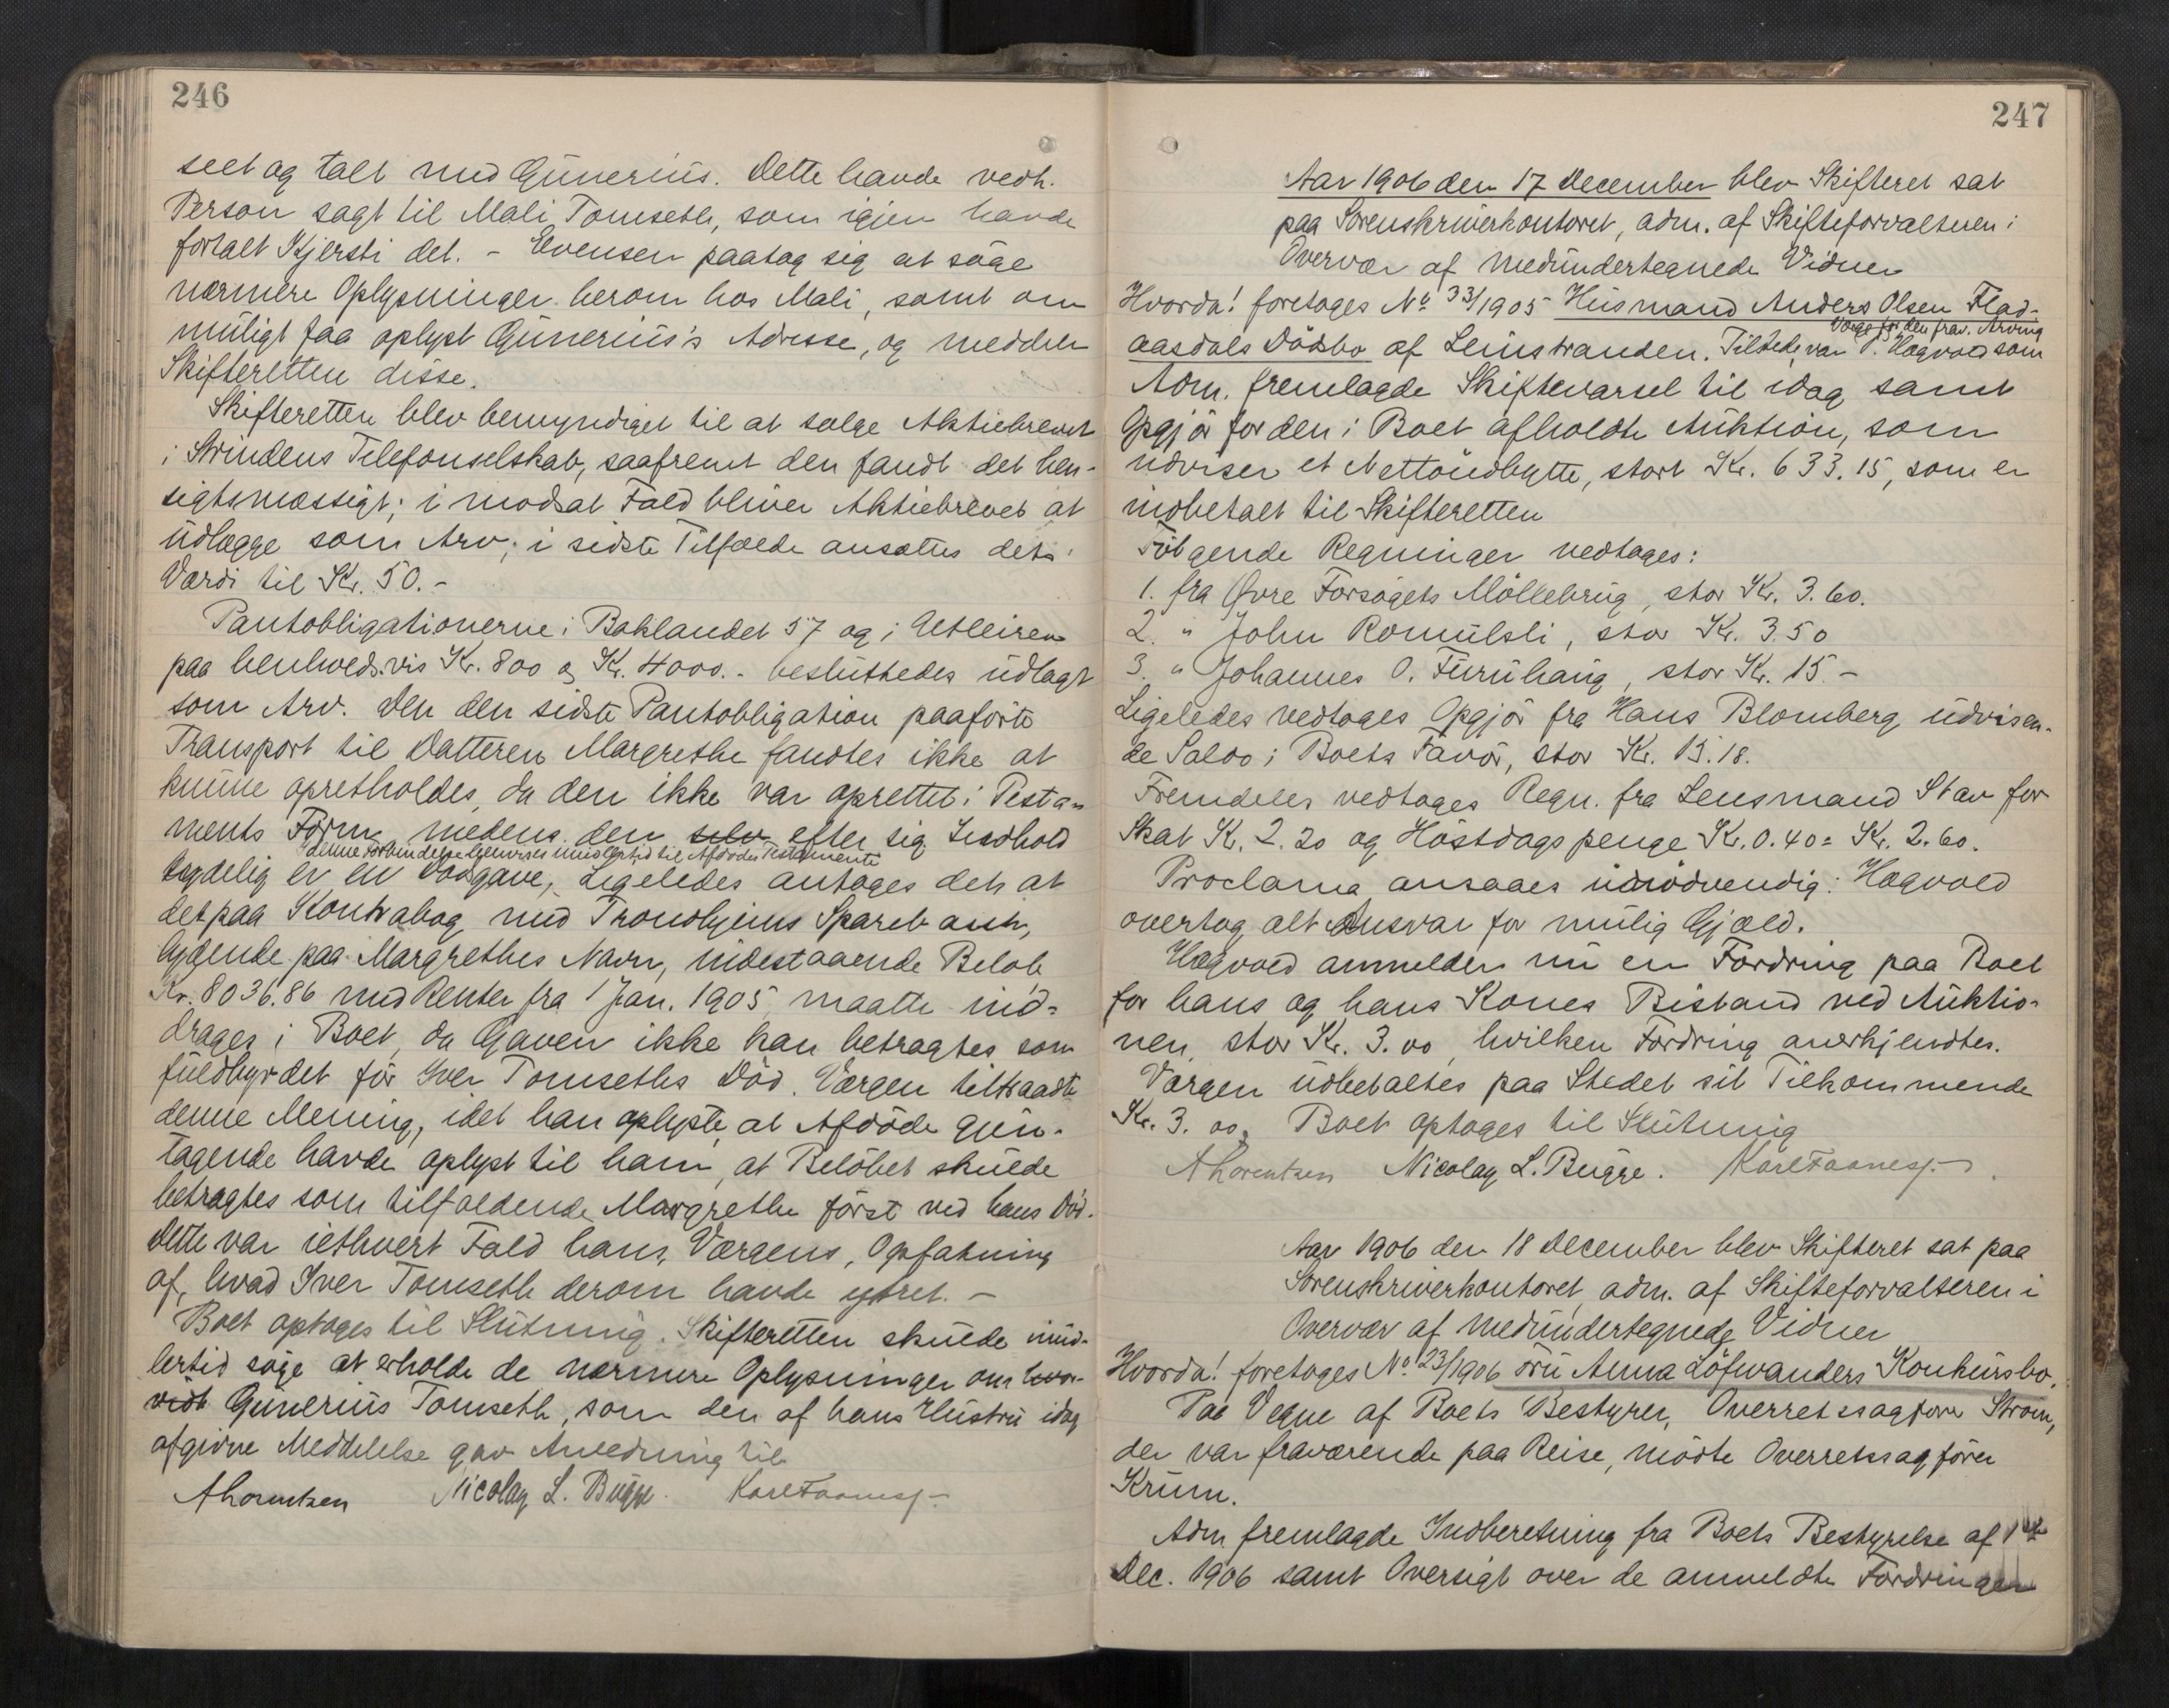 246
seet og talt med Gunerius. Dette havde vedk.
Person sagt til Mali Tomseth, som igjen havde
fortalt Kjersti det. - Evensen paatog sig at søge
nærmere Oplysninger herom hos Mali, samt om
muligt faa oplyst Gunerius's Adresse, og meddele
Skifteretten disse.
Skifteretten blev bemyndiget til at sælge Aktiebrevet
i Strindens Telefonselskab, saafremt den fandt det hen-
sigtsmæssigt; i modsat Fald bliver Aktiebrevet at
udlægge som Arv; i sidste Tilfælde ansattes dets
Værdi til Kr. 50.-
Pantobligationerne i Baklandet 57 og i
paa henholdsvis Kr. 800 og Kr. 4000.- besluttedes udlagt
som Arv. Den den sidste Pantobligation paaførte
Transport til Datteren Margrethe fandtes ikke at
kunne opretholdes, da den ikke var oprettet i Testa-
ments Form, medens den selv efter sig Indhold
denne Forbindelse henvises imidlertid til Afdødes Testamente
tydelig er en Dødsgave, Ligeledes antages det, at
det paa Kontrabog med Trondhjems Sparebank,
lydende paa Margrethes Navn, indestaaende Beløb
Kr. 8036.86 med Renter fra 1 Jan. 1905 maatte ind-
drages i Boet, da Gaven ikke kan betragtes som
fuldbyrdet før Iver Tomseths Død. Værgen tiltraadte
denne Mening, idet han oplyste, at Afdøde gjen-
tagende havde oplyst til ham, at Beløbet skulde
betragtes som tilfaldende Margrethe først ved hans Død.
Dette var iethvert Fald hans, Værgens, Opfatning
af, hvad Iver Tomseth derom havde ytret. -
Boet optoges til Slutning. Skifteretten skulde imid-
lertid søge at erholde de nærmere Oplysninger om hvor-
vidt Gunerius Tomseth, som den af hans Hustru idag
afgivne Meddelelse gav Anledning til
A Lorentzen Nicolay L. Bugge. Karl Faanes
247
Aar 1906 den 17 December blev Skifteret sat
paa Sorenskriverkontoret, adm. af Skifteforvalteren i
Overvær af medundertegnede Vidner
Hvorda! foretoges No 33/1905 Husmand Anders Olsen Flad-
Værge for den frav. Arving
aasdals Dødsbo af Leinstranden. Tilstede var P. Hagvold som
Adm. fremlagde Skiftevarsel til idag samt
Opgjør for den i Boet afholdte Auktion, som
udviser et Nettoudbytte, stort Kr. 633.15, som er
indbetalt til Skifteretten
Følgende Regninger vedtoges:
1. fra Øvre Forsøgets Møllebrug, stor Kr. 3.60.
2. " John Romulsli, stor Kr. 3.50
3. " Johannes O. Furuhaug, stor Kr. 15.-
Ligeledes vedtoges Opgjør fra Hans Blomberg udvisen-
de Saldo i Boets Favør, stor Kr. 15.18.
Fremdeles vedtoges Regn. fra Lensmand Stav for
Skat Kr. 2.20 og Høstdagspenge Kr. 0.40 = Kr. 2.60.
Proclama ansaaes unødvendig: Hagvold
overtog alt Ansvar for mulig Gjæld.
Hagvold anmelder nu en Fordring paa Boet
for hans og hans Kones Bistand ved Auktio-
nen, stor Kr. 3.00, hvilken Fordring anerkjendtes.
Værgen udbetaltes paa Stedet sit Tilkommende
Kr. 3.00. Boet optoges til Slutning
A Lorentzen Nicolay L. Bugge. Karl Faanes
Aar 1906 den 18 December blev Skifteret sat paa
Sorenskriverkontoret, adm. af Skifteforvalteren i
Overvær af medundertegnede Vidner
Hvorda! foretoges No. 23/1906 Fru Anna Löfwanders Konkursbo.
Paa Vegne af Boets Bestyrer, Overretssagfører Strøm,
der var fraværende paa Reise, mødte Overretssagfører
Krüm.
Adm. fremlagde Indberetning fra Boets Bestyrelse af 1ste
Dec. 1906 samt Oversigt over de anmeldte Fordringer